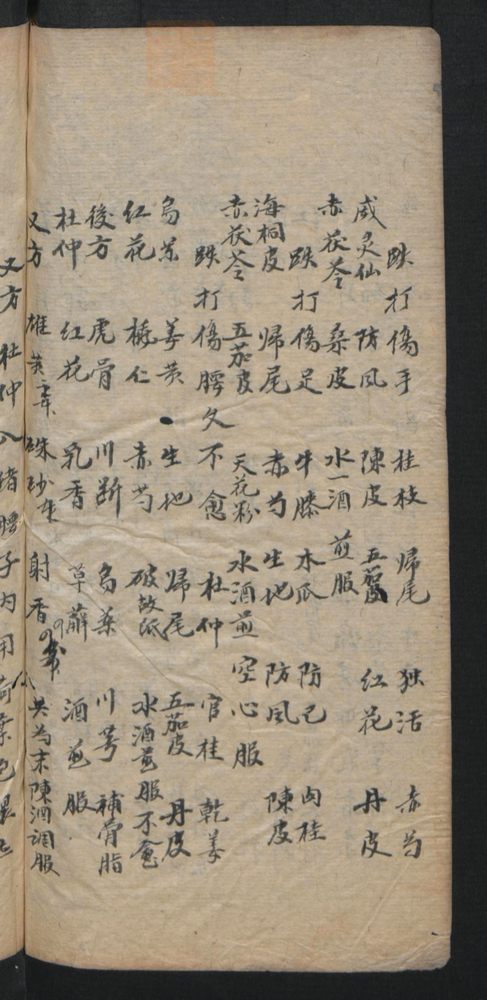 跌打傷手 桂枝 歸尾 独活 赤芍
威灵仙 防风 陳皮 五茄皮 红花 丹皮
赤茯苓 桑皮 水一酒 煎服
跌打傷足 牛膝 木瓜 防己 肉桂
海桐皮 歸尾 赤芍 生地 防風 陳皮
赤茯苓 五茄皮 天花粉 水酒煎 空心服
跌打傷腰久不愈 杜仲 官桂 乾姜
烏藥 姜黄 生地 歸尾 五茄皮 丹皮
红花 桃仁 赤芍 破故纸 水酒煎服不愈
後方 虎骨 川断 烏藥 川芎 補骨脂
杜仲 红花 乳香 草薢 酒煎服
又方 雄黄 珠砂 射香 共为末陳酒调服
又方 杜仲 入猪腰子内用荷葉包